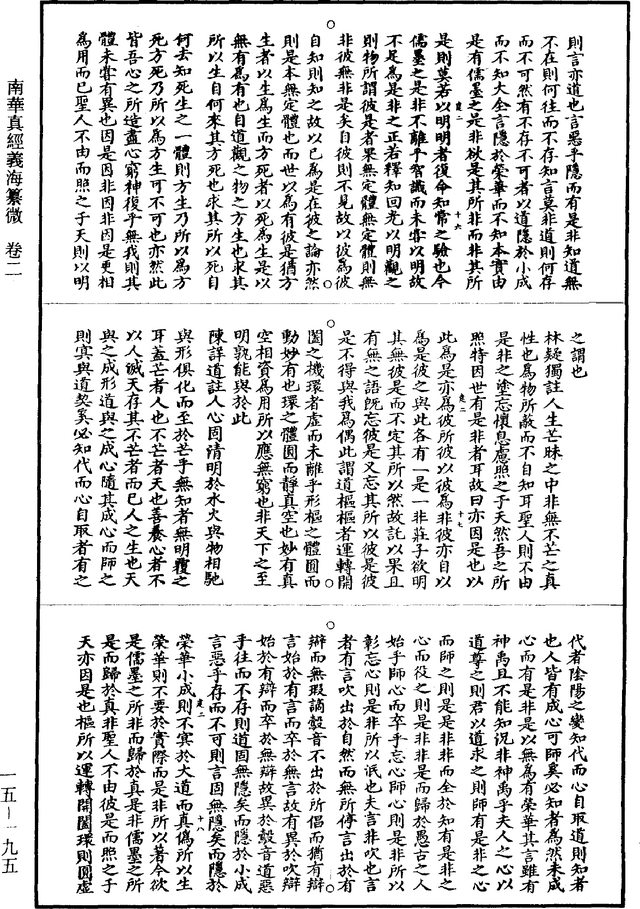 南華真經義海纂微 卷二
則言亦道也言惡乎隱而有是非知道無
不在則何往而不存知言莫非道則何存
而不可然有不存不可者以道隱於小成
而不知大全言隱於榮華而不知本實由
是有儒墨之是非欲是其所非而非其所
是則莫若以明明者復命知常之驗也今
儒墨之是非不離乎智識而未嘗以明故
不足為是非之正若釋知回光以明觀之
則物所謂彼是者果無定體無定體則無
非彼無非是矣自彼則不見故以彼為彼
自知則知之故以已為是在彼之論亦然
則是本無定體也而世以為有彼是猶方
生者以生為生而方死者以死為生是以
無有為有也自道觀之物之方生也求其
所以生自何來其方死也求其所以死自
何去知死生之一體則方生乃所以為方
死方死乃所以為方生可不可也亦然此
皆吾心之所造盡心窮神復乎無我則其
體未嘗有異也因是因非因非因是更相
為用而已聖人不由而照之于天則以明
之謂也
林疑獨註人生芒昧之中非無不芒之真
性也為物所蔽而不自知耳聖人則不由
是非之塗忘懷息慮照之于天然吾之所
照特因世有是非者耳故曰亦因是也以
此為是亦為彼所彼以彼為非彼亦自以
為是彼之與此各有一是一非莊子欲明
其無彼是而不定其所以然故託以果且
有無之語既忘彼是又忘其所以彼是彼
是不得與我為偶此謂道樞樞者運轉開
闔之機環者虛而未離乎形樞之體圓而
動妙有也環之體圓而靜真空也妙有真
空相資為用所以應無窮也非天下之至
明孰能與於此
陳詳道註人心固清明於水火與物相馳
與形俱化而至於芒乎無知者無明覆之
耳蓋芒者人也不芒者天也善養心者不
以人滅天存其不芒者而已人之生也天
與之成形道與之成心隨其成心而師之
則冥與道契奚必知代而心自取者有之
代者陰陽之變知代而心自取道則知者
也人皆有成心可師奚必知者為然未成
心而有是非是以無為有榮華其言雖有
神禹且不能知況非神禹乎夫人之心以
道導之則君以道求之則師有是非之心
而師之則是是非非而全於知有是非之
心而役之則是非非是而歸於愚古之人
始乎師心而卒乎忘心師心則是非所以
彰忘心則是非所以泯也夫言非吹也言
者有言吹出於自然而無所停言出於有
辯而無瑕謫鷇音不出於所倡而猶有辯
言始於有言而卒於無言故有異於吹辯
始於有辯而卒於無辯故異於鷇音道惡
乎往而不存則道固無隱矣而隱於小成
言惡乎存而不可則言因無隱矣而隱於
榮華小成則不寅於大道而真偽所以生
榮華則不要於實際而是非所以著今欲
是儒墨之所非而歸於真是非儒墨之所
是而歸於真非聖人不由彼是而照之于
天亦因是也樞所以運轉開闔環則圓虛
卷二 十六
卷二 十七
卷二 十八
一五—一九五